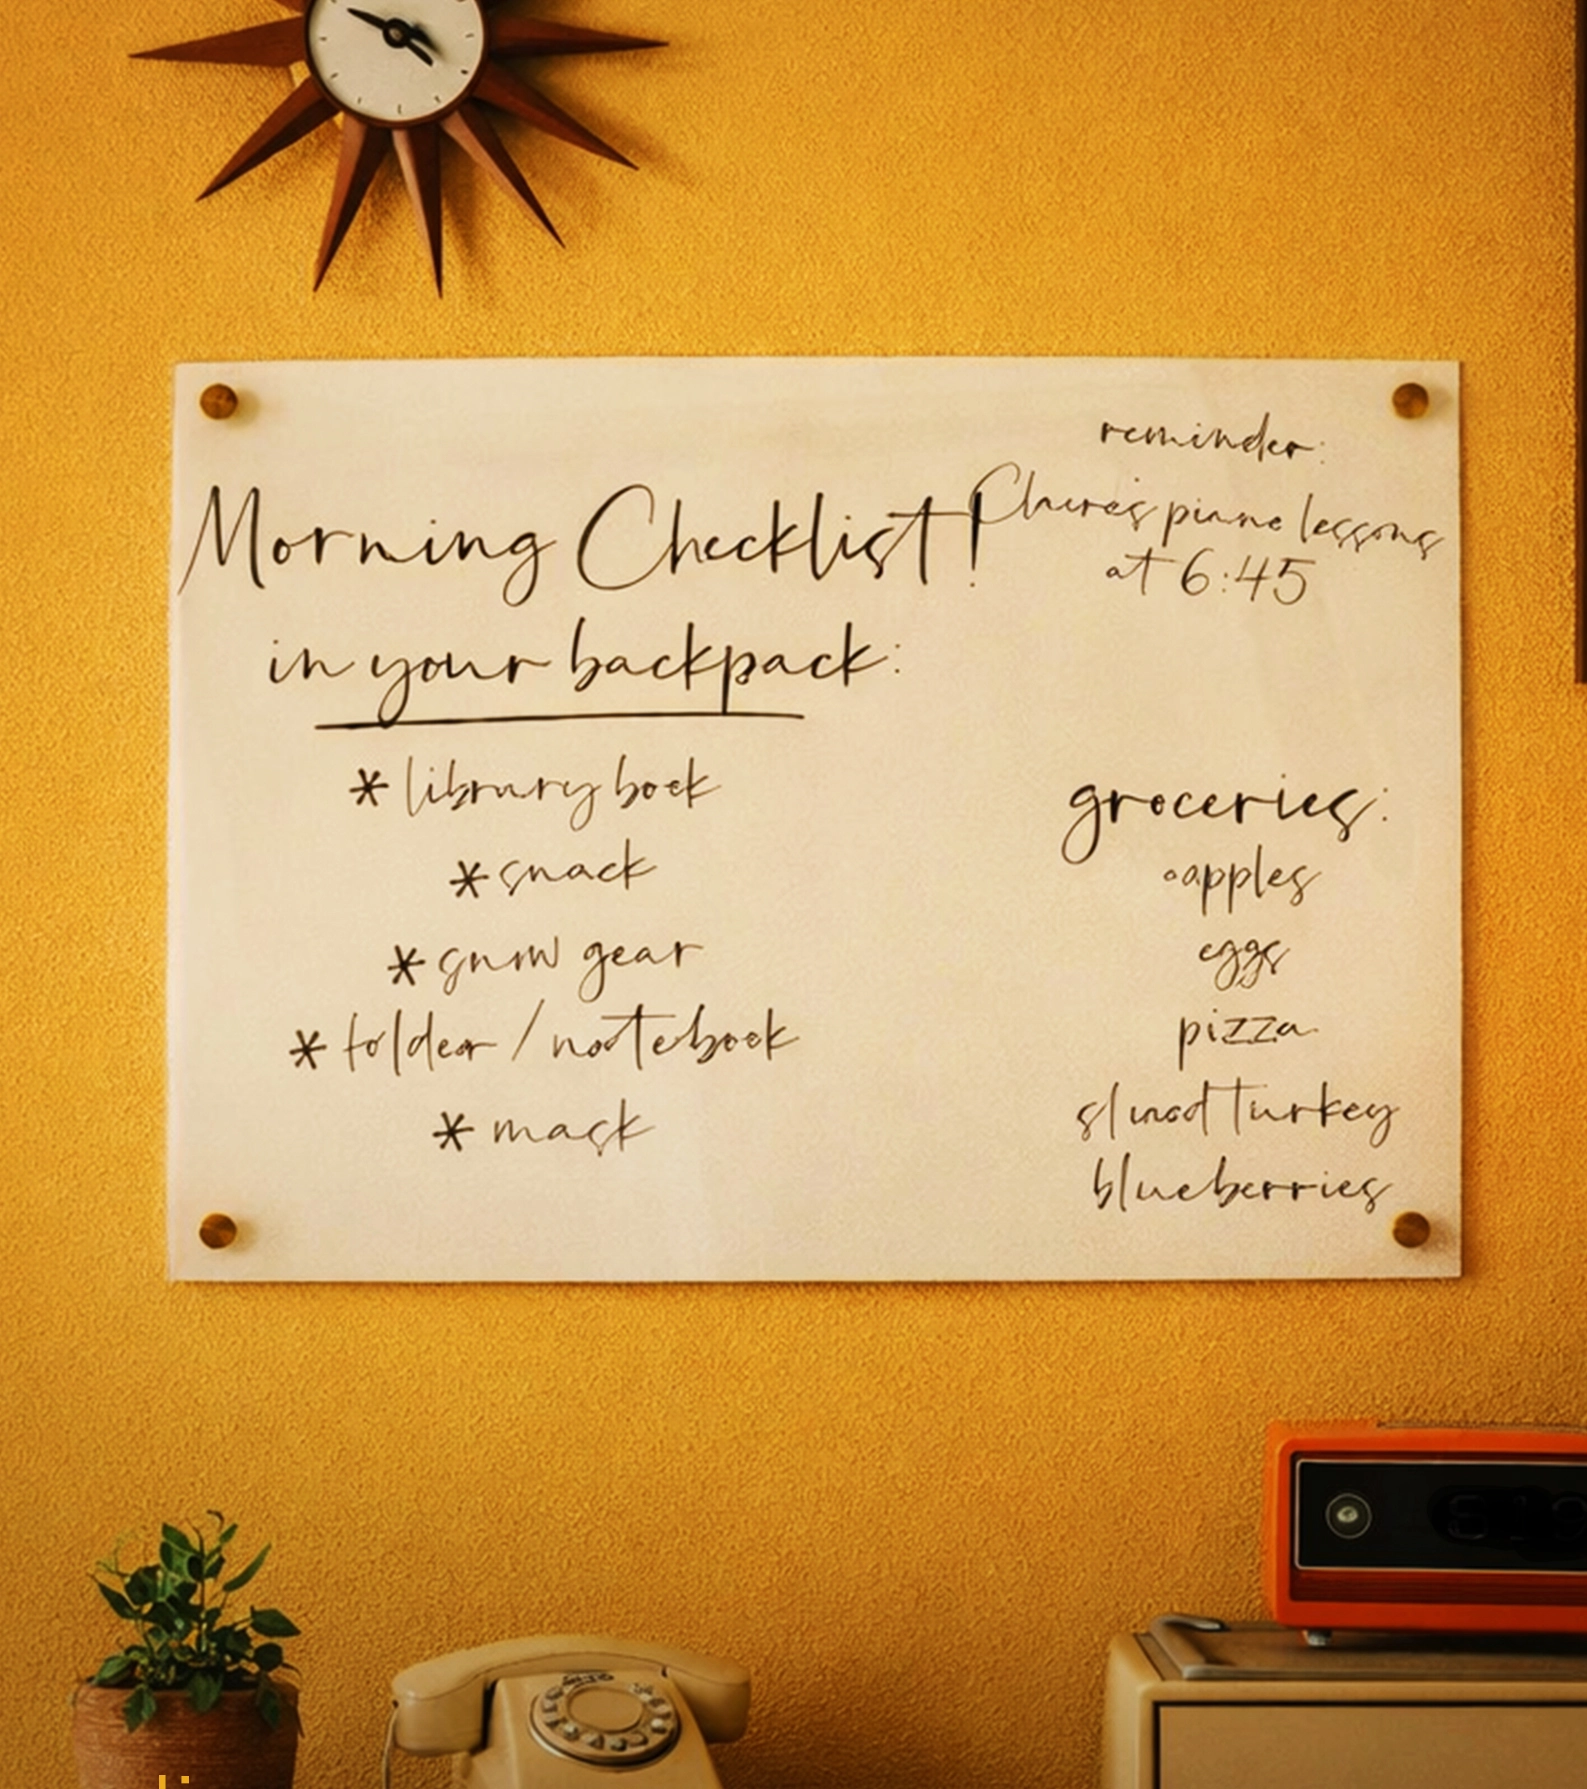 Morning Checklist!
in your backpack:
* library book
* snack
* snow gear
* folder / notebook
* mask
reminder:
piano lessons
at 6:45
groceries:
◦apples
eggs
pizza
turkey
blueberries